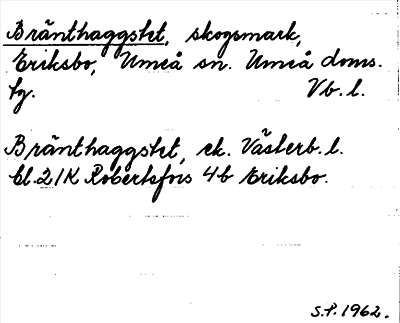 Bränthaggstet, skogsmark,
Eriksbo, Umeå sn. Umeå doms.
fg. Vb. l.
Bränthaggstet, ek. Västerb. l.
bl. 21K Robertsfors 4b Eriksbo.
S.P. 1962.